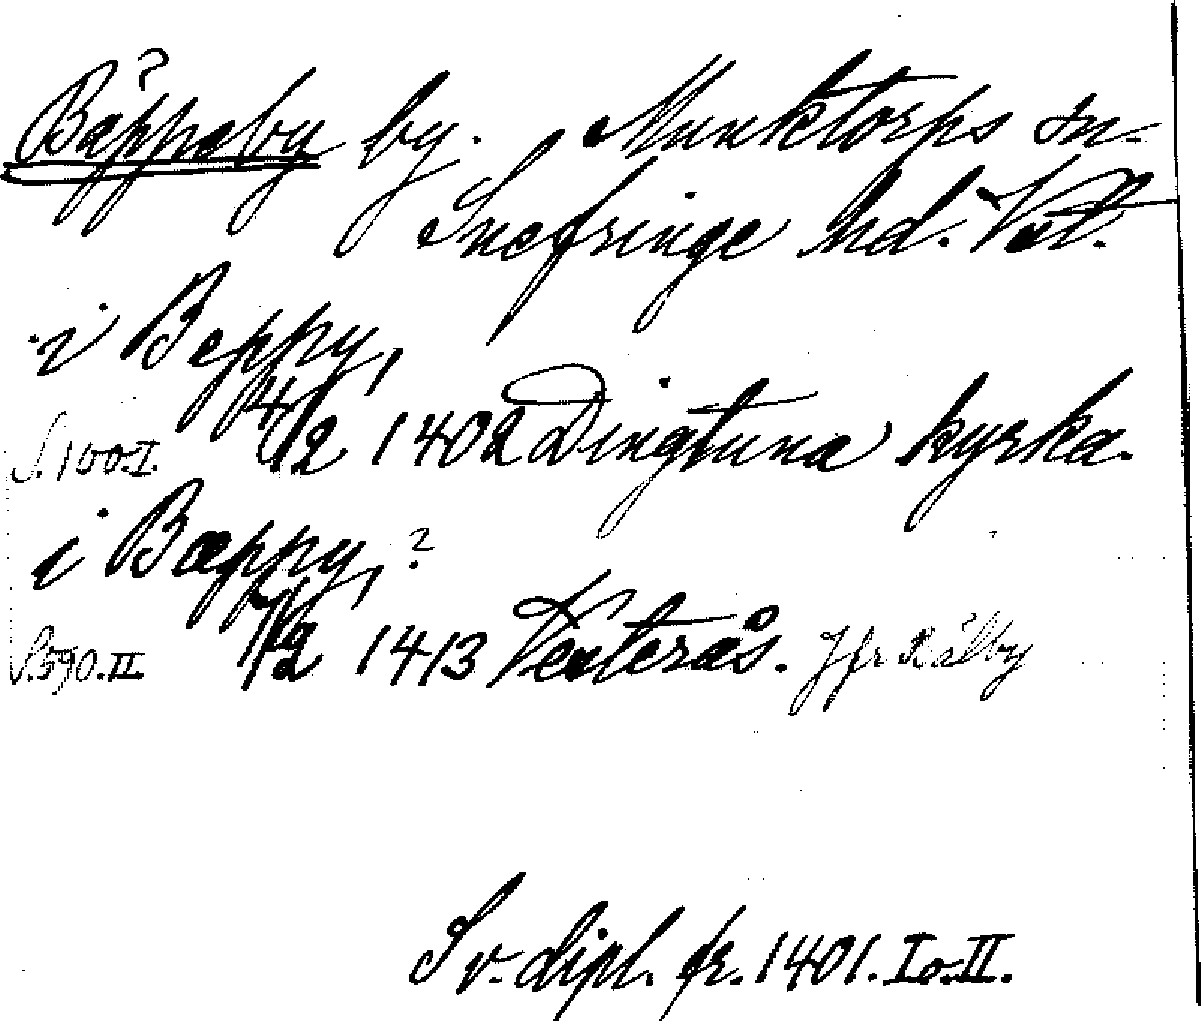 ?
Bäppeby by. Munktorps sn.
Snefringe hd. Vstl.
i Beppy,
S. 100 I. 14/2 1402 Dingtuna kyrka.
i Bæppy, ?
S. 590. II. 7/2 1413 Vesterås. Jfr Rälby
Sv. dipl. fr. 1401. I o. II.